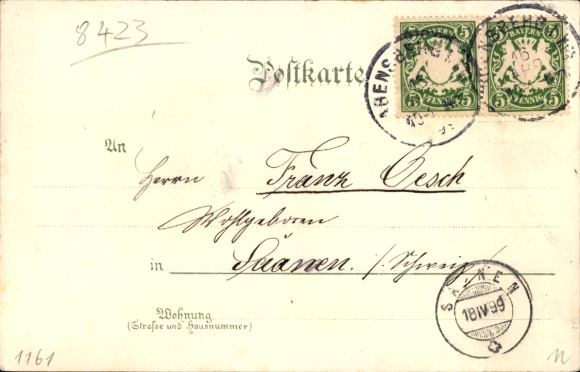 8423
5 BAYERN 5
PFENNIG
5 BAYERN 5
5 PFENNIG 5
Postkarte
An
Herrn Franz Oesch
Wohlgeboren
in Saanen. (Schweiz)
SAANEN
18 IV 99
Wohnung
(Straße und Hausnummer)
1161